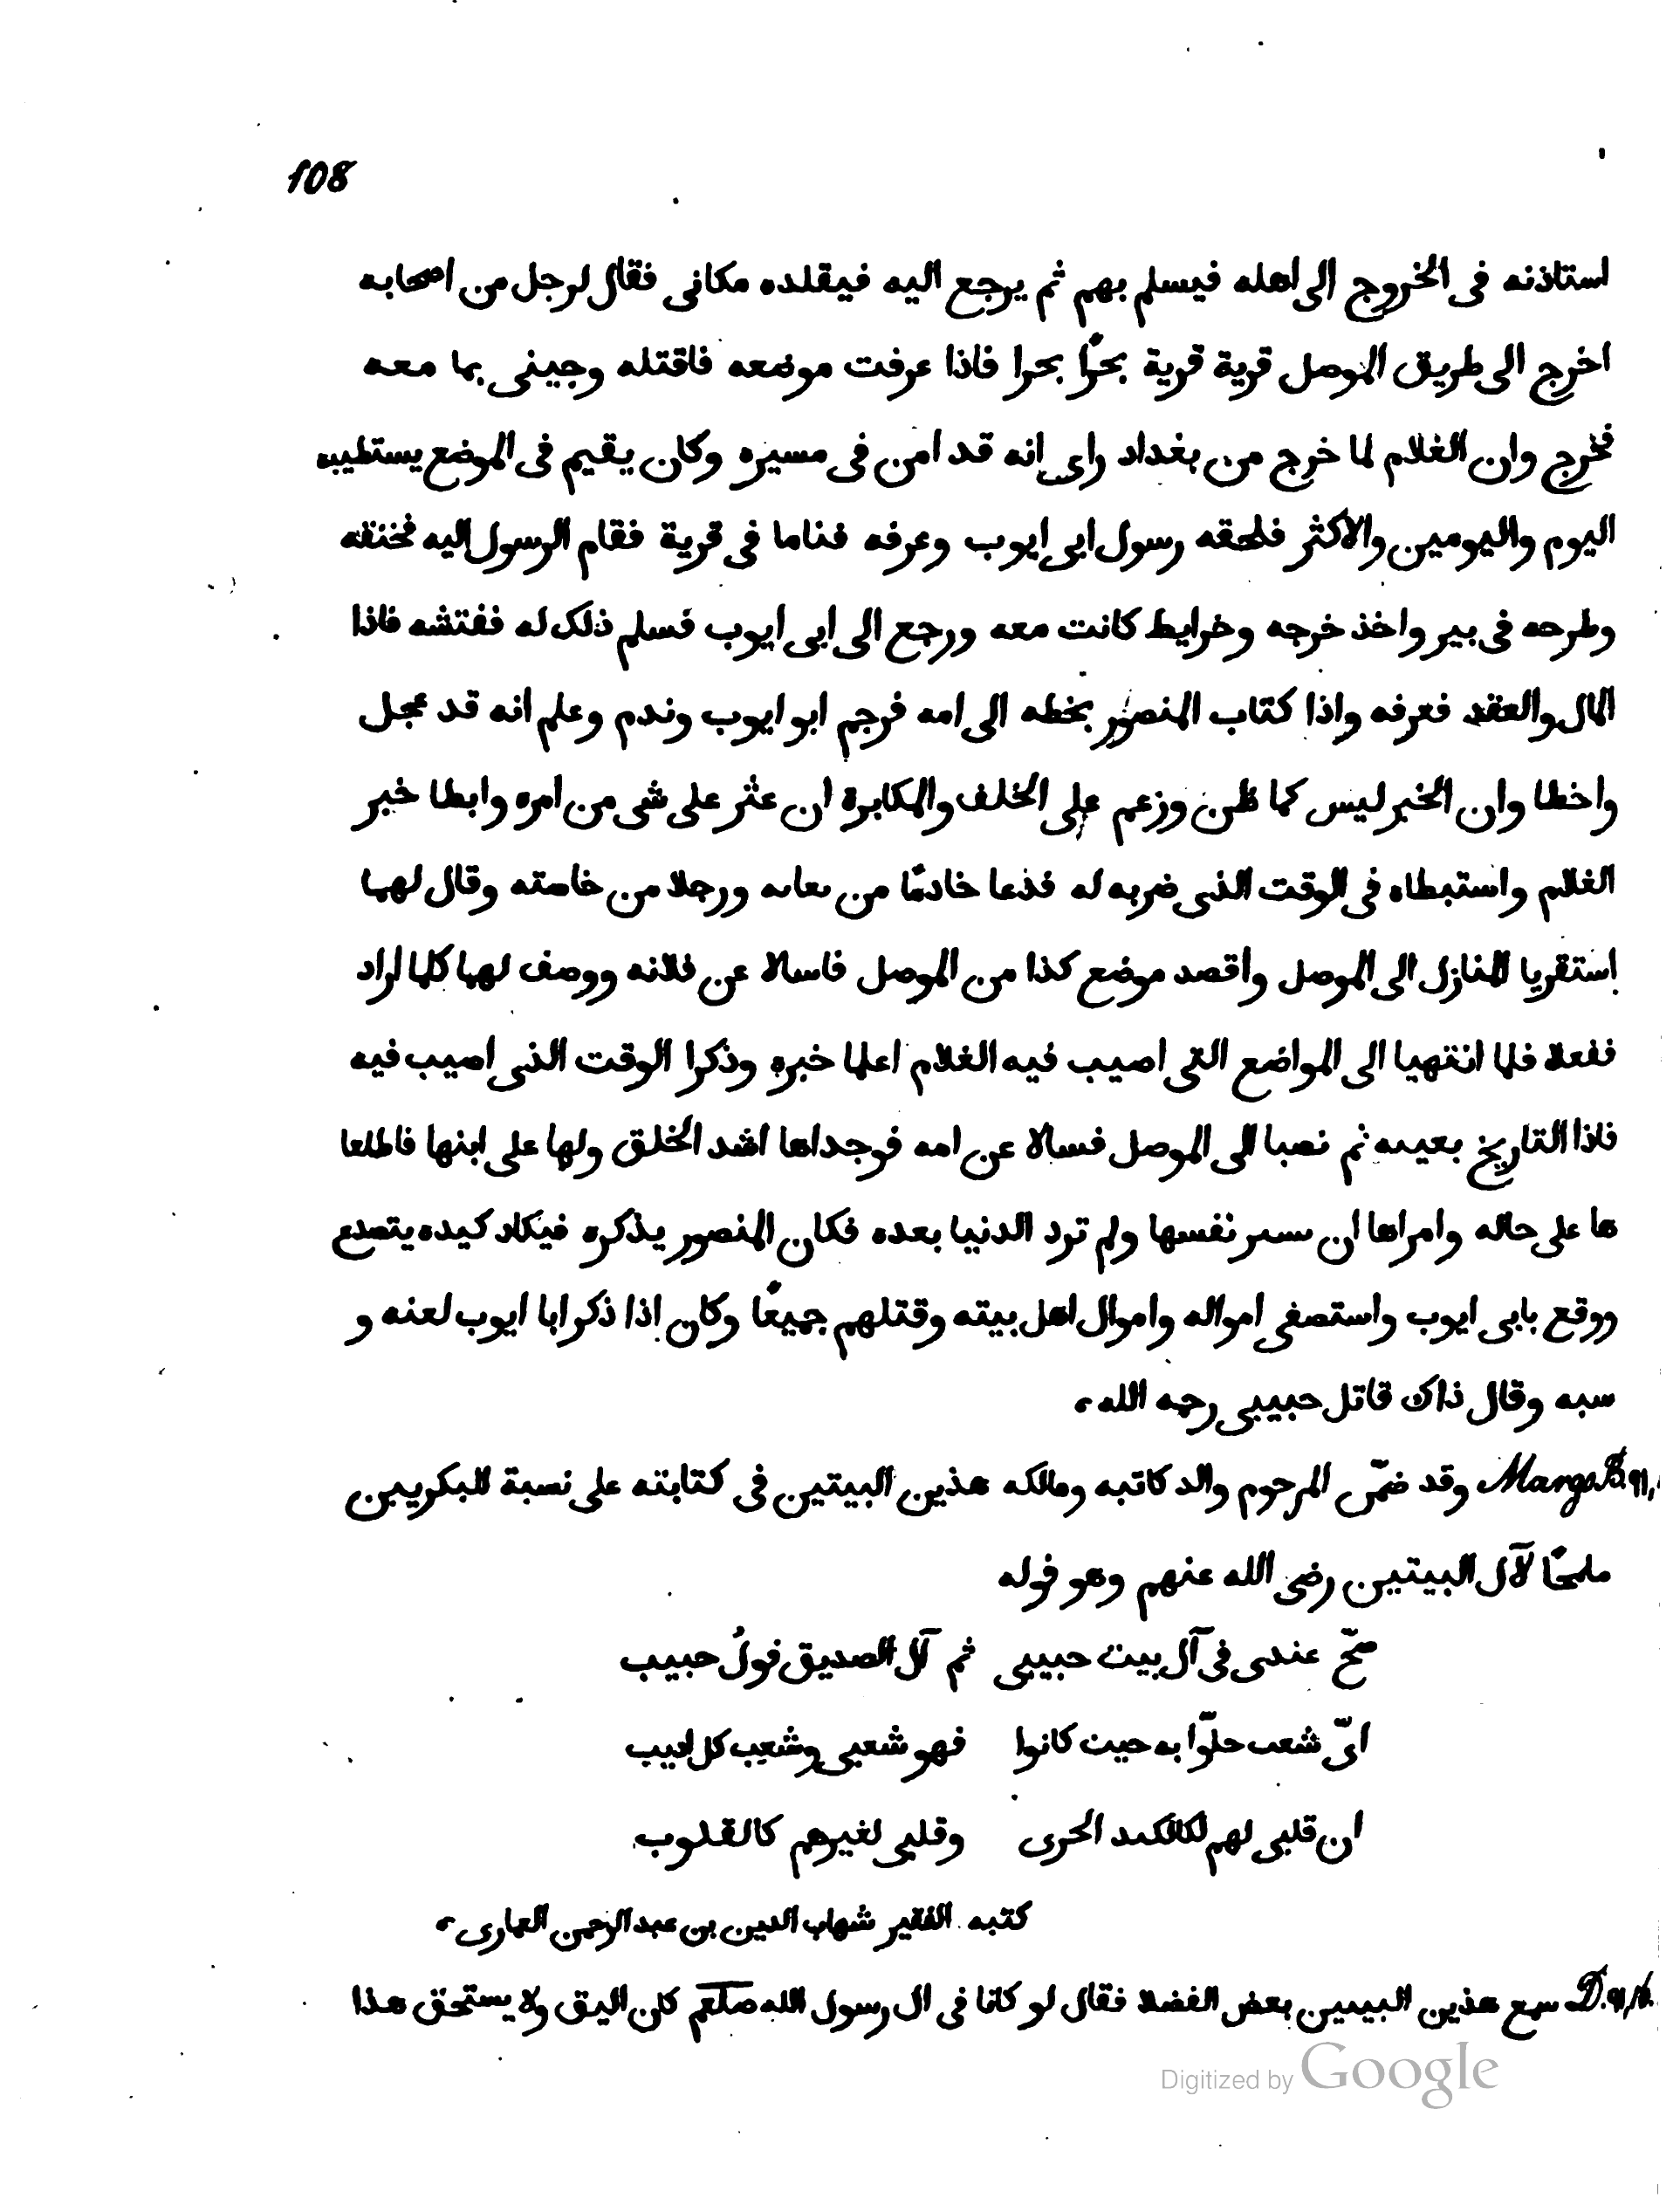 108
استاذنه فى الخروج الى اهله فيسلم بهم ثم يرجع اليه فيقلده مكانى فقال لرجل من اصحابه
اخرج الى طريق الموصل قرية قرية بحرًا بحرا فاذا عرفت موضعه فاقتله وجينى بما معه
فخرج وان الغلام لما خرج من بغداد راى انه قد امن فى مسيره وكان يقيم فى الموضع يستطيبه
اليوم واليومين والاكثر فلحقه رسول ابى ايوب وعرفه فناما فى قرية فقام الرسول اليه فخنقه
وطرحه فى بير واخذ خرجه وخرايط كانت معه ورجع الى ابى ايوب فسلم ذلك له ففتشه فاذا
المال والعقد فعرفه واذا كتاب المنصور بخطه الى امه فرجم ابو ايوب وندم وعلم انه قد عجل
واخطا وان الخبر ليس كما ظن وزعم على الخلف والمكابرة ان عثر على شى من امره وابطا خبر
الغلام واستبطاه فى الوقت الذى ضربه له فدعا خادمًا من ورجلا من خاصته وقال لهما
استقريا المنازل الى الموصل واقصد موضع كذا من الموصل فاسالا عن فلانه ووصف لهما كلما اراد
ففعلا فلما انتهيا الى المواضع التى اصيب فيه الغلام اعلما خبره وذكرا الوقت الذى اصيب فيه
فاذا التاريخ بعينه ثم نصبا الى الموصل فسالا عن امه فوجداها اشد الخلق ولها على ابنها فاطلعا
ها على حاله وامراها ان نفسها ولم ترد الدنيا بعده فكان المنصور يذكره فيكاد كيده يتصدع
ووقع بابى ايوب واستصفى امواله واموال اهل بيته وقتلهم جميعًا وكان اذا ذكر ابا ايوب لعنه و
سبه وقال ذاك قاتل حبيبى رحمه الله
Margo B. 91, وقد ضمّن المرحوم والد كاتبه ومالكه هذين البيتين فى كتابته على نسبة للبكريين
ملمحًا لآل البيتين رضى الله عنهم وهو قوله
صحّ عندى فى آل بيت حبيبى ثم آل الصديق قولُ حبيب
اىّ شعب حلّوا به حيث كانوا فهو شعبى وشعب كل اديب
ان قلبى لهم لكالكبد الحرى وقلبى لغيرهم كالقلوب
كتبه الفقير شهاب الدين بن عبد الرحمن العمارى
D. 91, سمع هذين البيتين بعض الفضلا فقال لو كانا فى ال رسول الله صلعم كان اليق ولا يستحق هذا
Digitized by Google